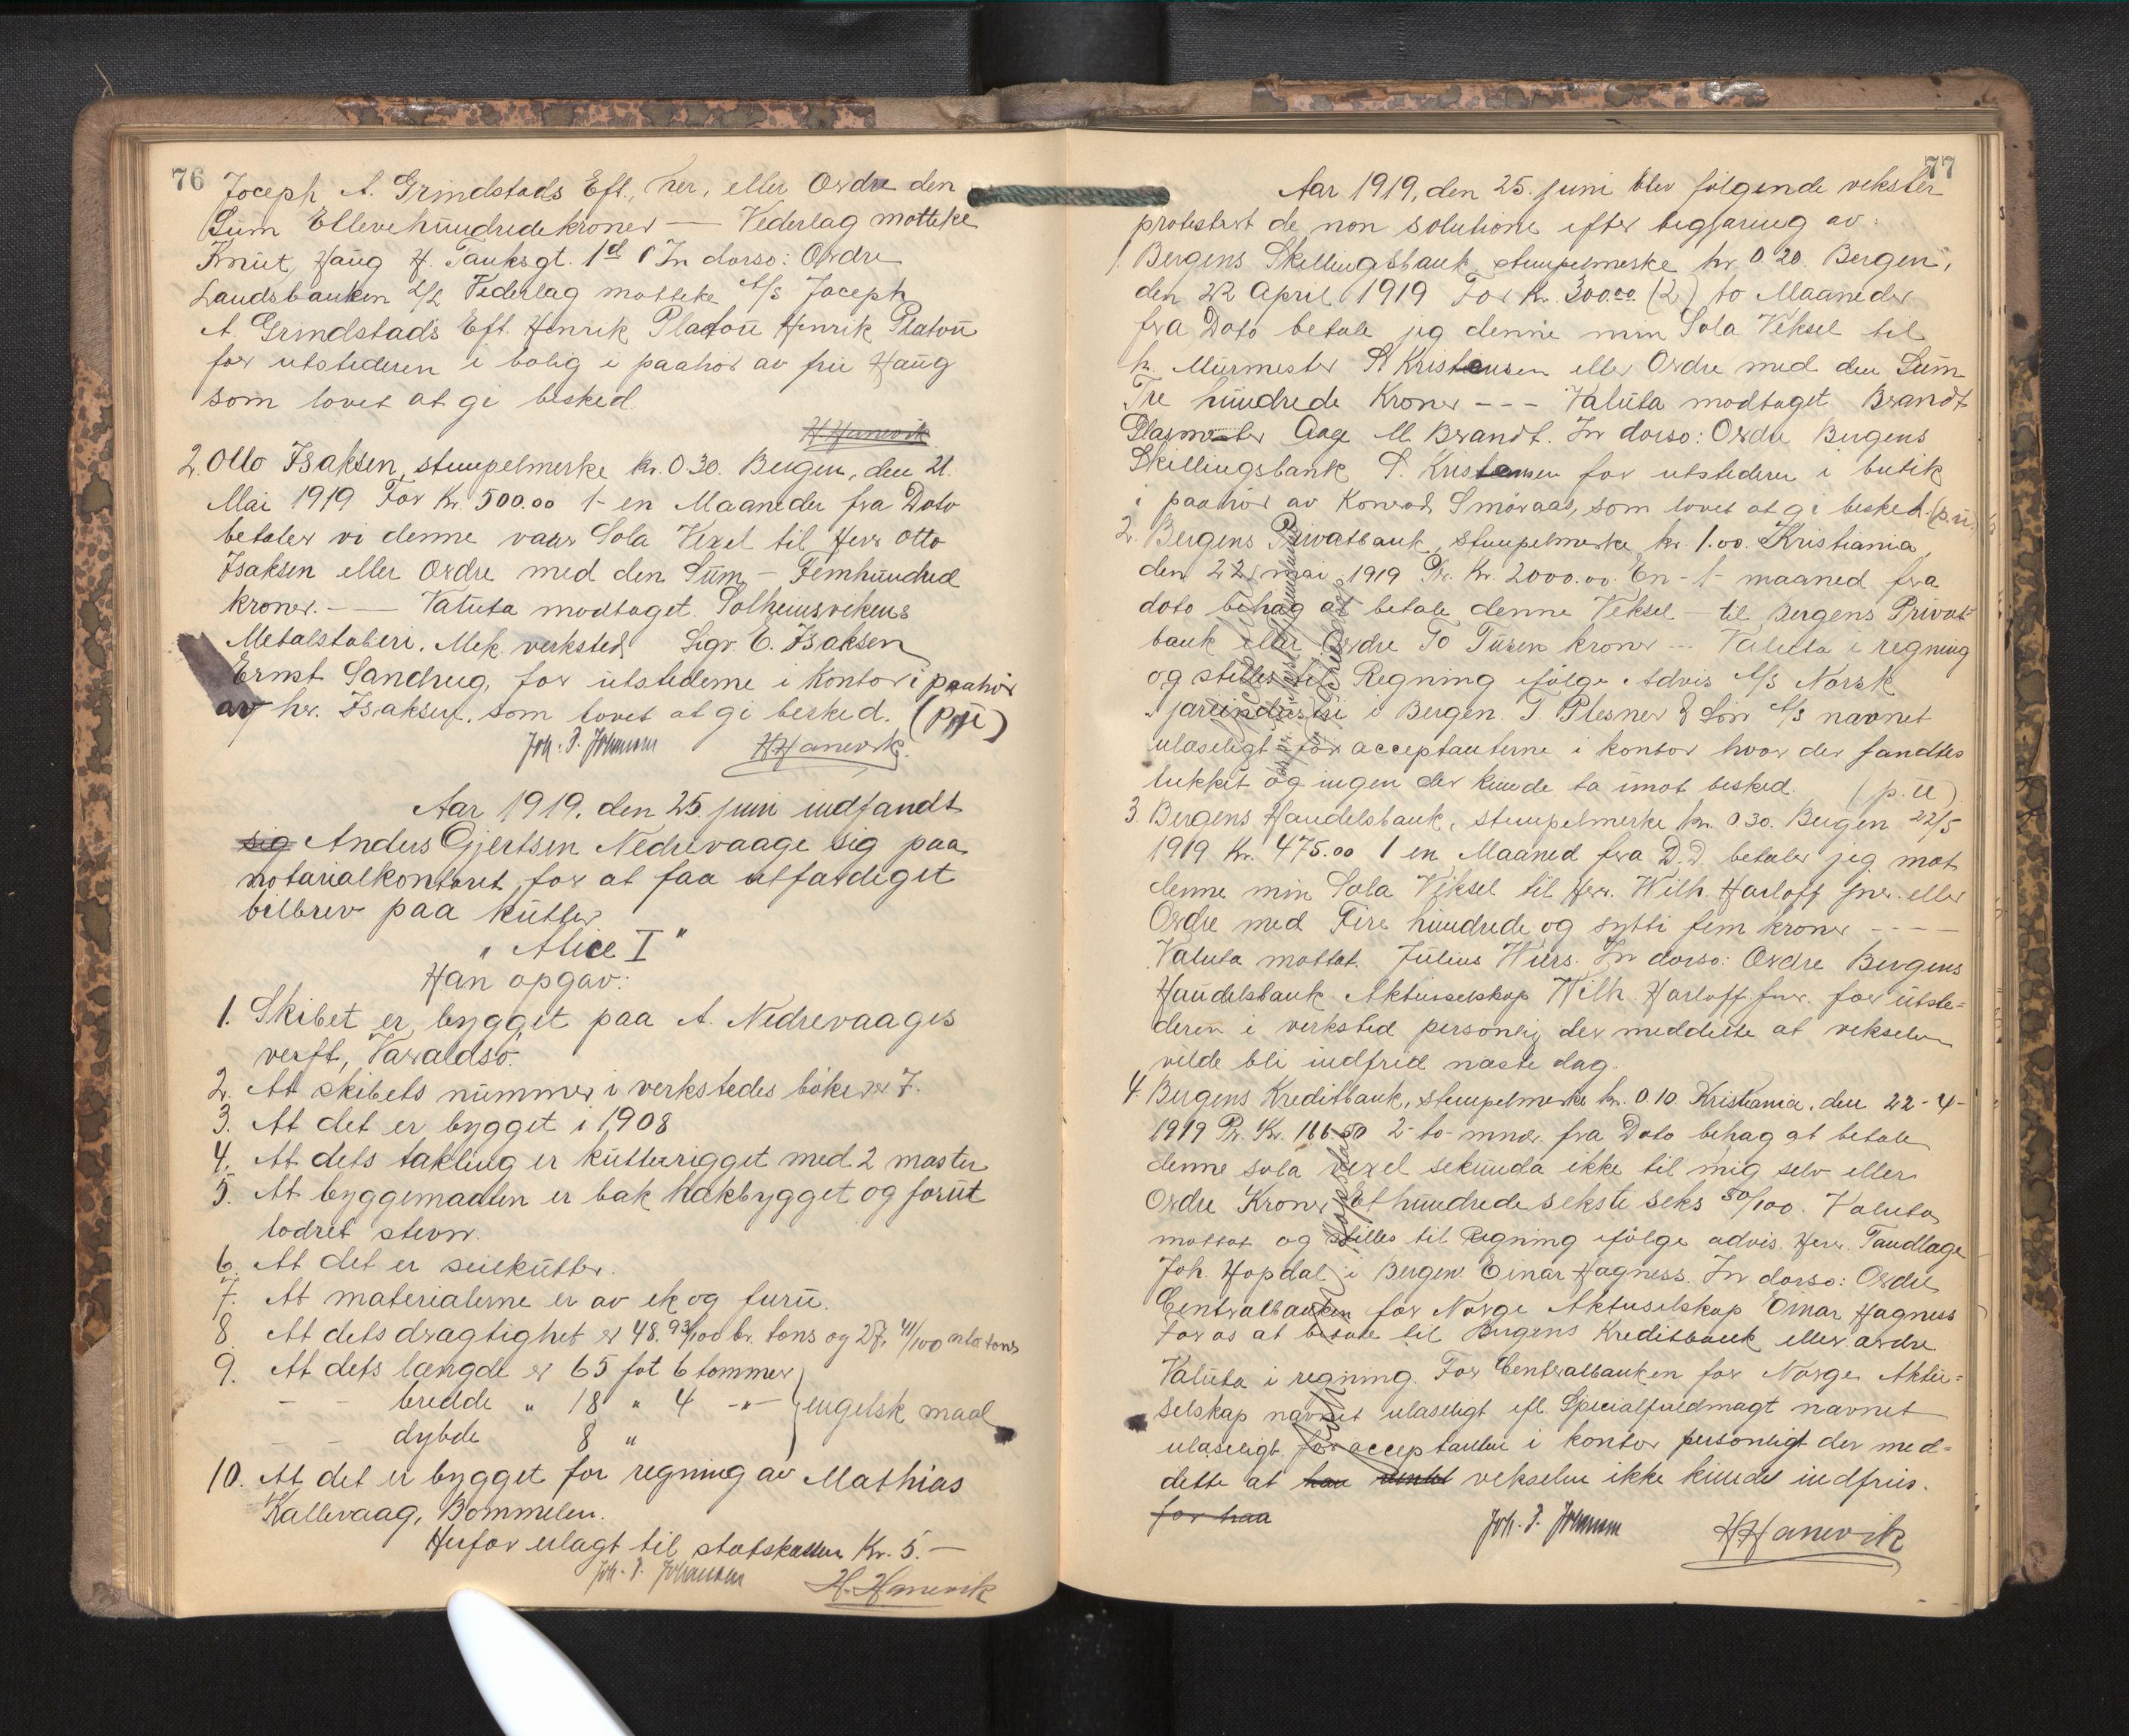 76
Joceph A. Grindstads Eft., her, eller Ordre den
Sum Ellevehundredekroner — Vederlag motteke
Knut Haug H. Tanksgt. 1d In dorso: Ordre
Landsbanken A/L Vederlag motteke A/S Joceph
A. Grindstads Eft. Henrik Platou Henrik Platou
for utstederen i bolig i paahör av fru Haug
som lovet at gi besked.
H Hanevik
2. Otto Isaksen, stempelmerke kr. 0.30. Bergen, den 21.
Mai 1919 For Kr. 500.00 1- en Maaneder fra Dato
betaler vi denne vaar Sola Vexel til Herr Otto
Isaksen eller Ordre med den Sum – Femhundred
kroner. — Valuta modtaget. Solheimsvikens
Metalstöberi. Mek. verksted Sigv. E. Isaksen
Ernst Sandrug, for utstederne i Kontor i paahör
av hr. Isaksen, som lovet at gi besked. (p.u)
Joh. P. Johansen H Hanevik.
Aar 1919, den 25. juni indfandt
sig Anders Gjertsen Nedrevaage sig paa
notarialkontoret for at faa utfærdiget
bilbrev paa kutter
„Alice I"
Han opgav:
1. Skibet er bygget paa A. Nedrevaages
verft, Varaldsö.
2. At skibets nummer i verkstedes böker er 7.
3. At det er bygget i 1908
4. At dets takling er kutterrigget med 2 master
5. At byggemaaten er bak hakbygget og forut
lodret stevn.
6. At det er seilkutter.
7. At materialerne er av ek og furu.
8. At dets drægtighet er 48.93/100 br. tons og 27,41/100 netto tons
9. At dets længde er 65 fot 6 tommer
— — bredde „ 18 „ 4 -„- } engelsk maal
— — dybde 8 „
10. At det er bygget for regning av Mathias
Kallevaag, Bömmelen.
Herfor erlagt til statskassen Kr. 5.—
Joh. P. Johansen H. Hanevik
77
Aar 1919, den 25. juni blev følgende veksler
protestert de non solutione efter begjæring av:
1. Bergens Skillingsbank, stempelmerke kr. 0.20. Bergen,
den 22 April 1919 For Kr. 300.00 (2) to Maaneder
fra Dato betale jeg denne min Sola Veksel til
hr. Murmester S Kristensen eller Ordre med den Sum
Tre hundrede Kroner --- Valuta modtaget Brandt
Glasmester Aage M. Brandt. In dorso: Ordre Bergens
Skillingsbank S. Kristensen for utstederen i butik
i paahör av Konrad Smöraas, som lovet at gi besked. (p.u)
2. Bergens Privatbank, stempelmerke kr. 1.00. Kristiania,
den 22 mai 1919 Pr. Kr. 2000.00. En -1- maaned fra
dato behag at betale denne Veksel – til Bergens Privat-
bank eller Ordre To Tusen kroner --- Valuta i regning
og stilles til Regning ifölge Advis A/S Norsk
i Bergen. T. Plesner & Sön A/S navnet
ulæseligt for acceptanterne i kontor hvor der fandtes
lukket og ingen der kunde ta imot besked. (p.u)
3. Bergens Handelsbank, stempelmerke kr. 0.30. Bergen 22/5
1919 Kr. 475.00 1 en Maaned fra D.D. betaler jeg mot
denne min Sola Veksel til Herr. Wilh. Harloff jnr. eller
Ordre med Fire hundrede og sytti fem kroner ----
Valuta mottat. Julius Wiers. In dorso: Ordre Bergens
Handelsbank Aktieselskap Wilh. Harloff jnr. for utste-
deren i verksted personlig der meddelte at vekselen
vilde bli indfriet næste dag.
4. Bergens Kreditbank, stempelmerke kr. 0.10 Kristiania, den 22-4-
1919 Pr. Kr. 166.50 2- to- mndr. fra Dato behag at betale
denne sola vexel sekunda ikke til mig selv eller
Ordre Kroner Et hundrede seksti seks 50/100. Valuta
mottat og stilles til Regning ifölge advis. Herr. Tandlæge
Joh. Hopdal i Bergen Einar Hagness. In dorso: Ordre
Centralbanken for Norge Aktieselskap Einar Hagness
For os at betale til Bergens Kreditbank eller ordre
Valuta i regning. For Centralbanken for Norge Aktie-
selskap navnet ulæseligt efl. Specialfuldmagt navnet
ulæseligt. for acceptanten i kontor personligt der med-
delte at han vekselen ikke kunde indfries.
for haa
Joh. P. Johansen H Hanevik